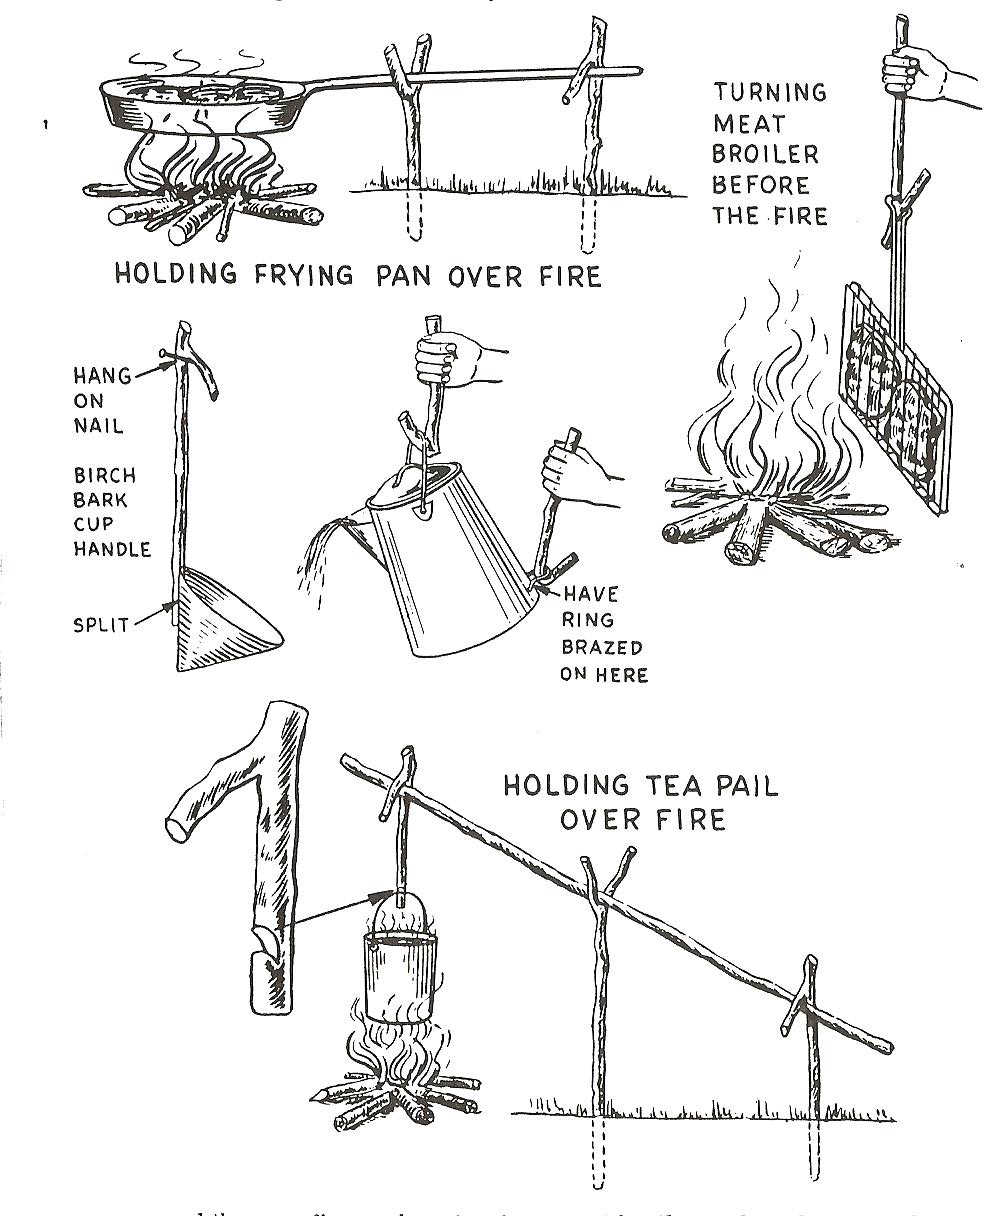 TURNING
MEAT
BROILER
BEFORE
THE FIRE
HOLDING FRYING PAN OVER FIRE
HANG
ON
NAIL
BIRCH
BARK
CUP
HANDLE
SPLIT
HAVE
RING
BRAZED
ON HERE
HOLDING TEA PAIL
OVER FIRE